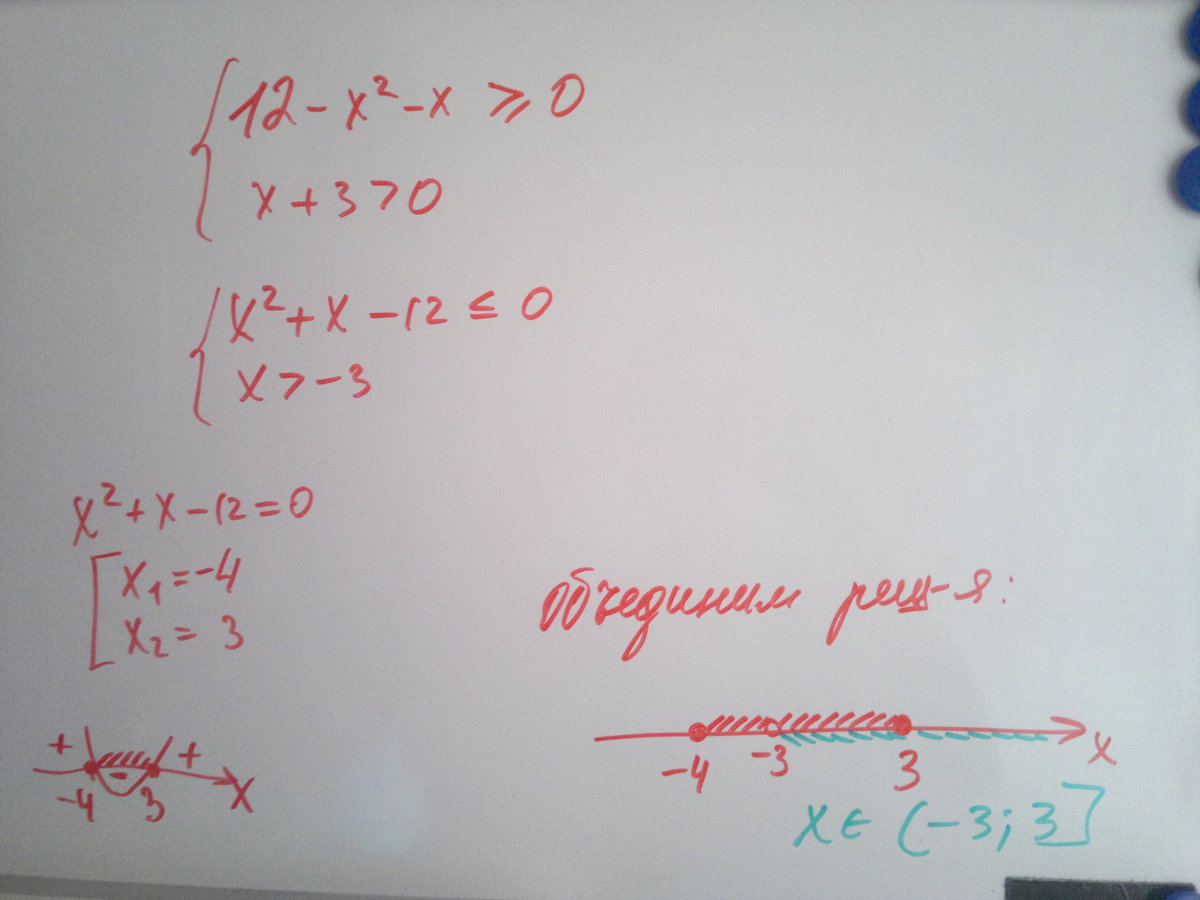 12 - x² - x ⩾ 0
x + 3 > 0
x² + x - 12 ≤ 0
x > -3
x² + x - 12 = 0
x₁ = -4
x₂ = 3
+ - +
-4 3 x
объединим реш-я:
-4 -3 3 x
x ∈ (-3; 3]